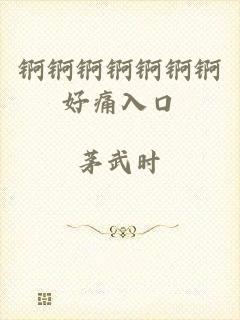 锕锕锕锕锕锕锕
好痛入口
茅武时